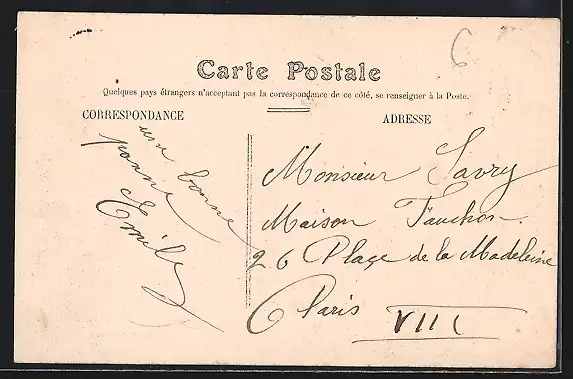 6
Carte Postale
Quelques pays étrangers n'acceptant pas la correspondance de ce côté, se renseigner à la Poste.
CORRESPONDANCE
ADRESSE
une bonne
Emile
Monsieur Savry
Maison Fauchon
26 Place de la Madeleine
Paris VIII